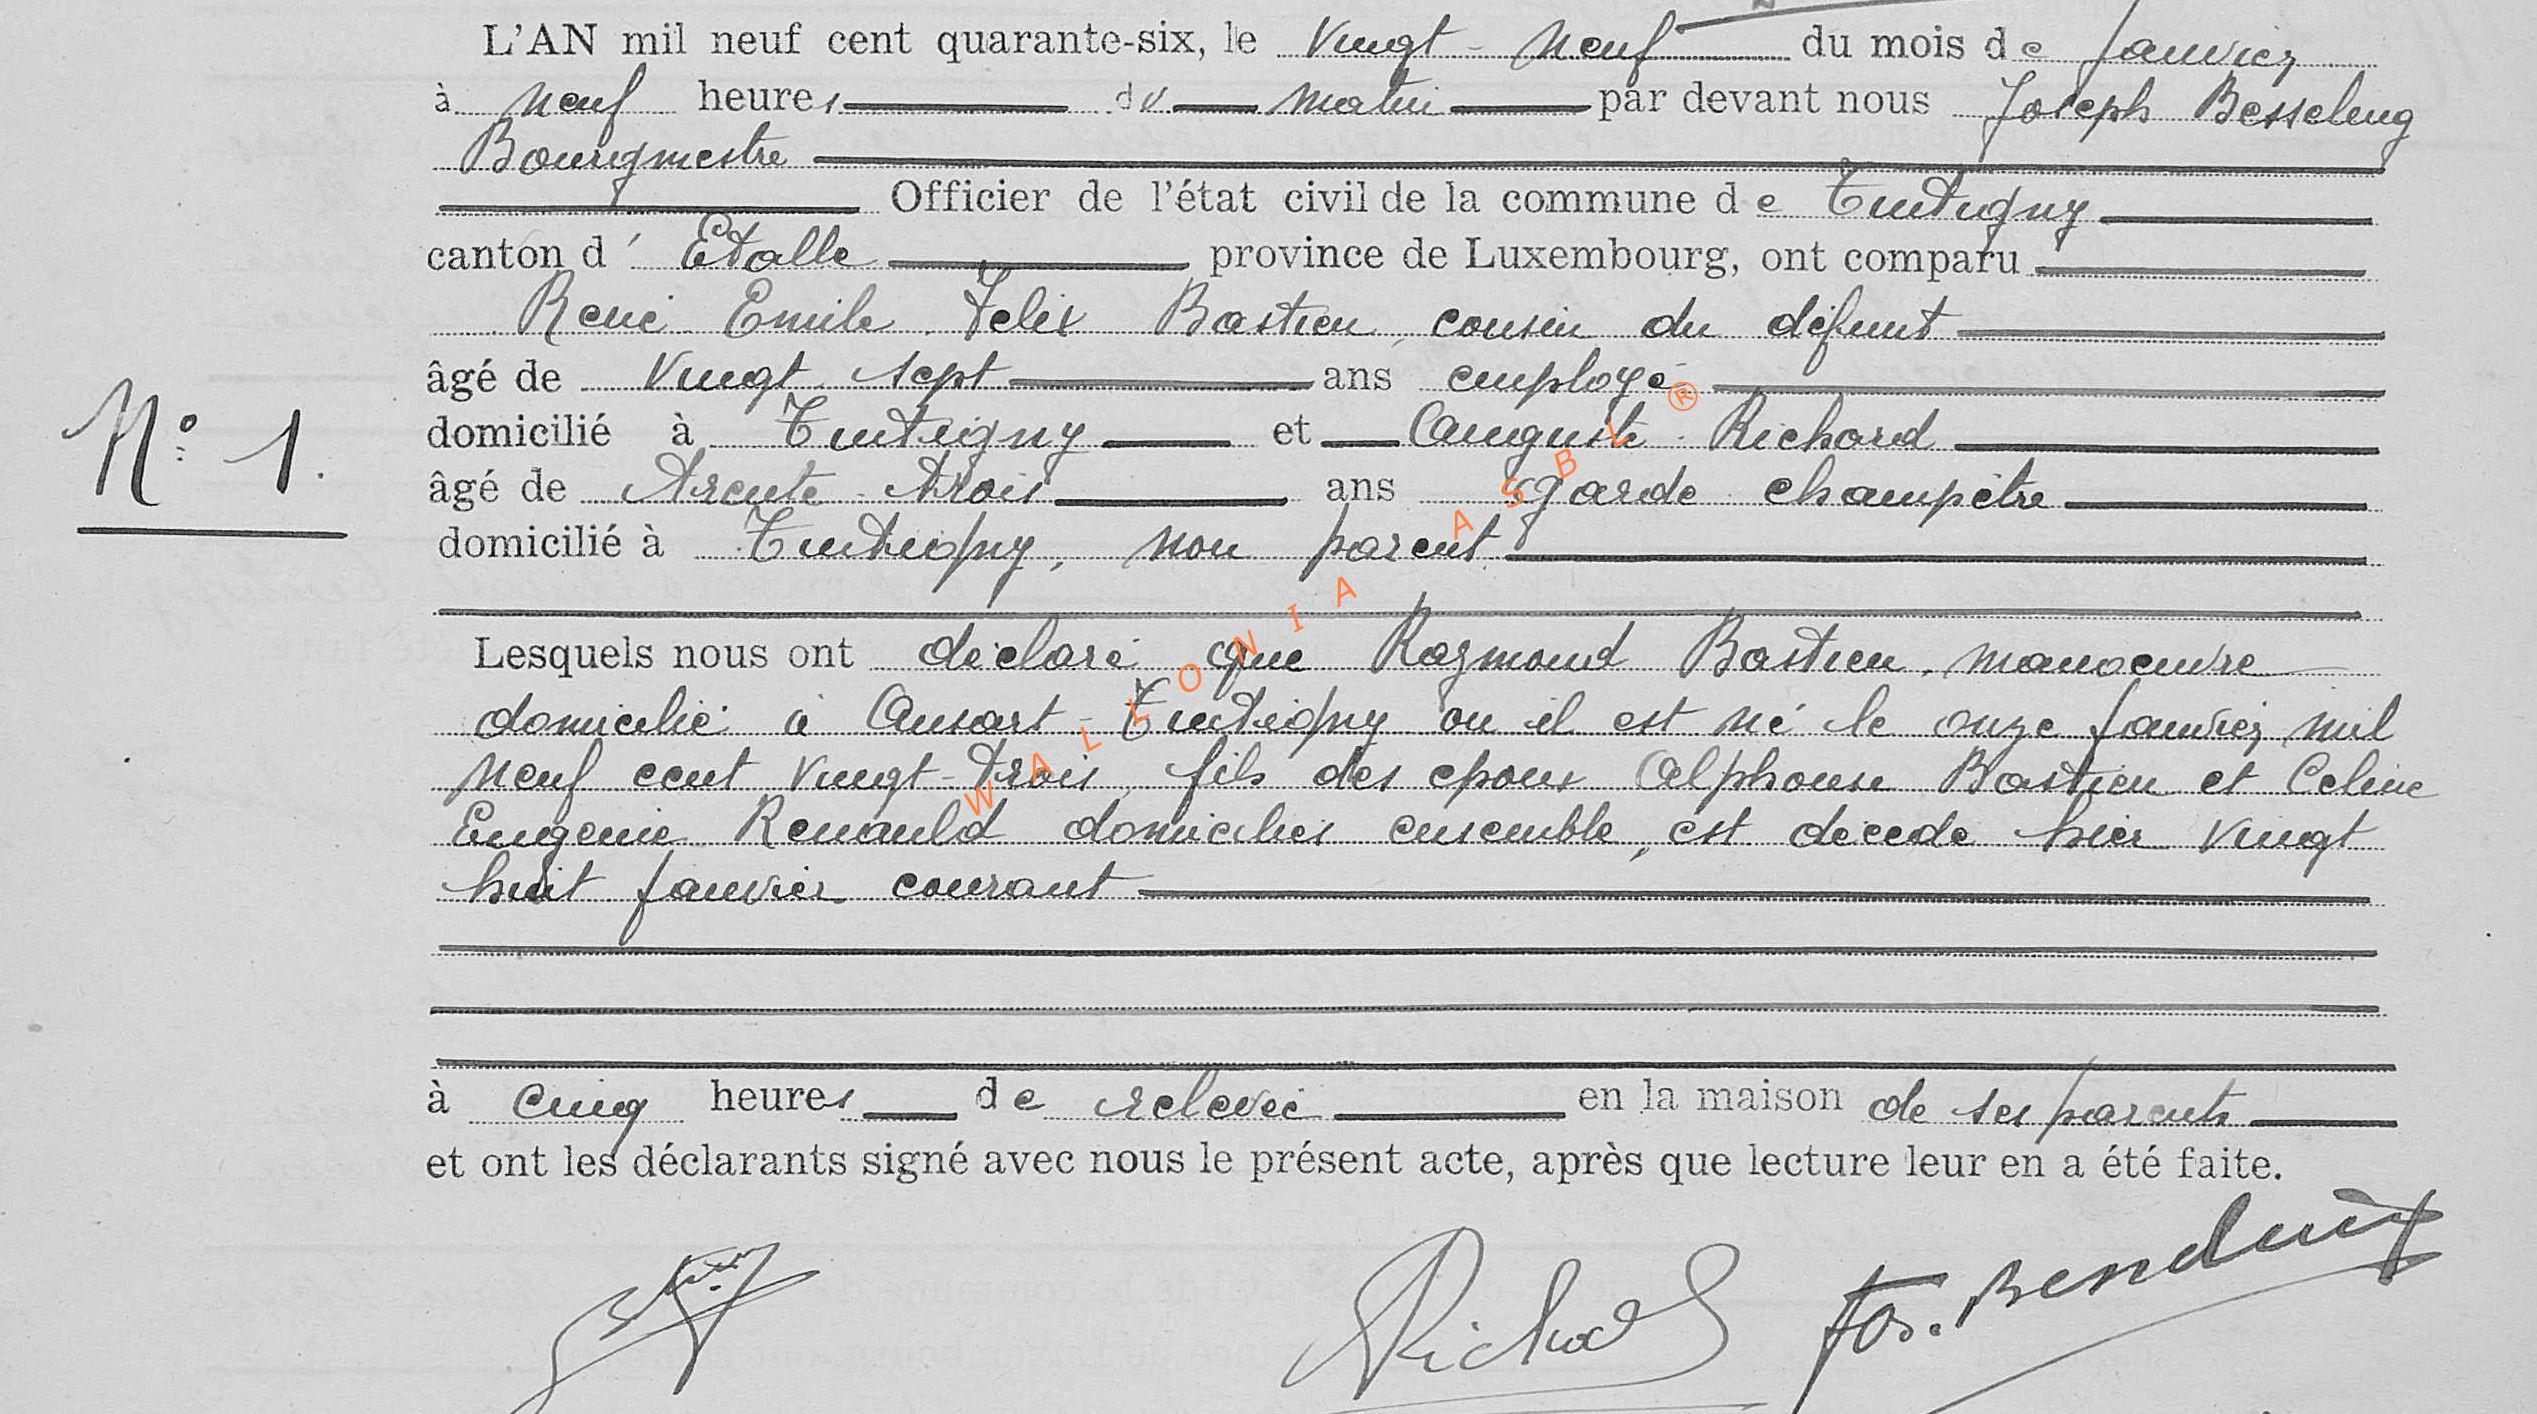 L'AN mil neuf cent quarante-six, le Vingt-Neuf du mois de Janvier
à Neuf heures du Matin par devant nous Joseph Besseling
Bourgmestre
Officier de l'état civil de la commune de Tintigny
canton d'Etalle province de Luxembourg, ont comparu
René Emile Felix Bastien, cousin du défunt
âgé de Vingt sept ans employé
domicilié à Tintigny et Auguste Richard
N° 1.
âgé de trente trois ans garde champêtre
domicilié à Tintigny, non parent
Lesquels nous ont déclaré que Raymond Bastien, manoeuvre
domicilié à Ansart-Tintigny ou il est né le onze Janvier mil
neuf cent vingt-trois, fils des epoux Alphonse Bastien et Celine
Eugenie Renauld domiciliés ensemble, est décédé hier vingt
huit Janvier courant
à cinq heures de relevée en la maison de ses parents
et ont les déclarants signé avec nous le présent acte, après que lecture leur en a été faite.
Richard
WALLONIA ASBL ®